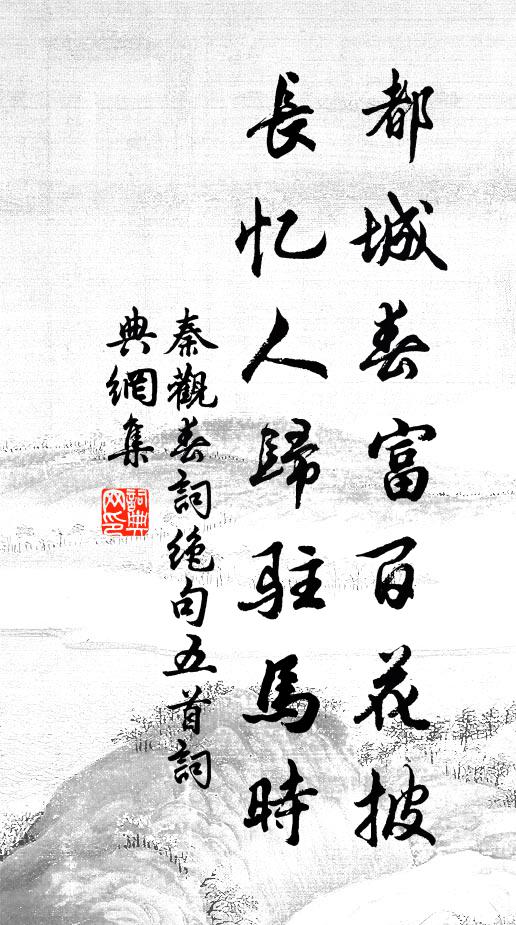 都城春富百花披
長忆人歸駐馬時
秦觀春詞绝句五首詞
典網集
詞典
网印